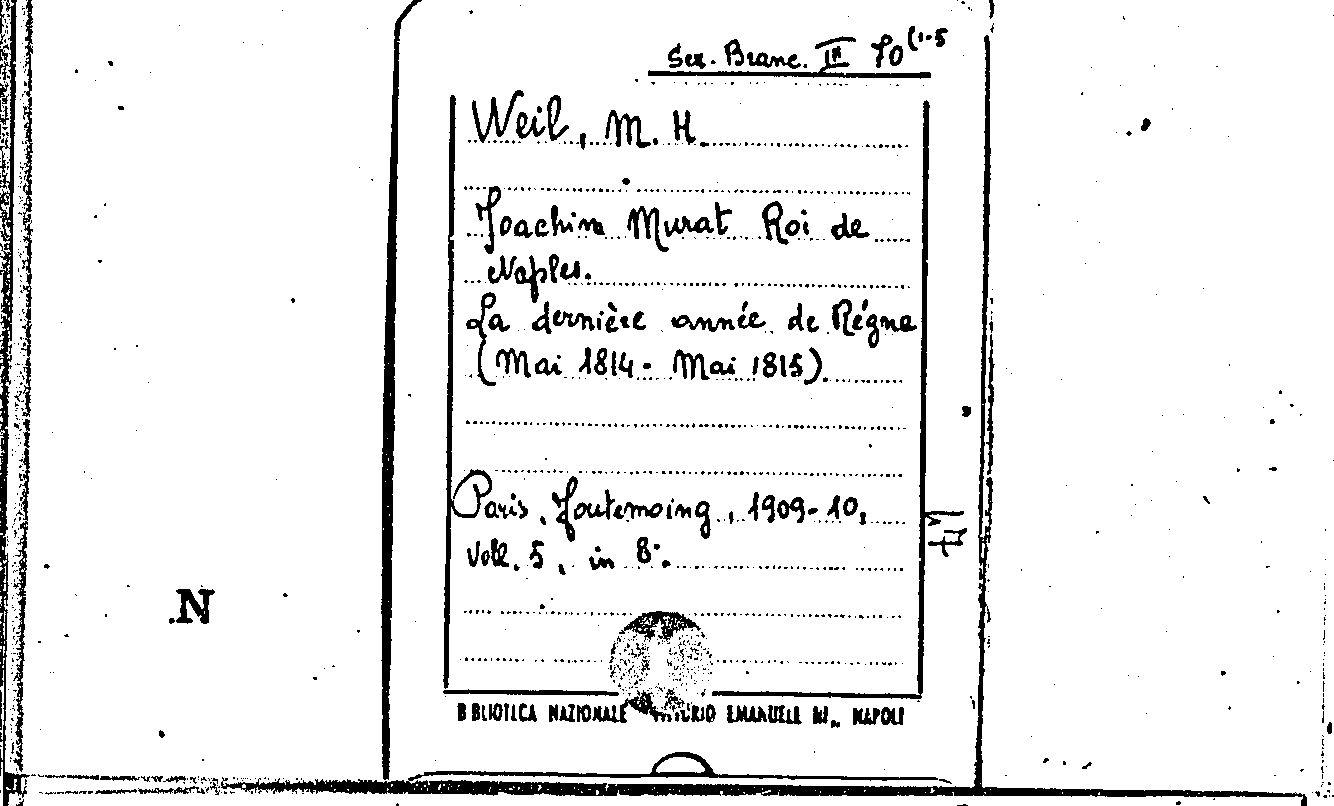 Sez. Branc. III 70(1-5
Weil, M. H.
Joachim Murat Roi de
Naples.
La dernière année de Régne
(Mai 1814 - Mai 1815).
Paris, Foutemoing, 1909-10,
voll. 5, in 8°.
N
BIBLIOTECA NAZIONALE VITTORIO EMANUELE III., NAPOLI